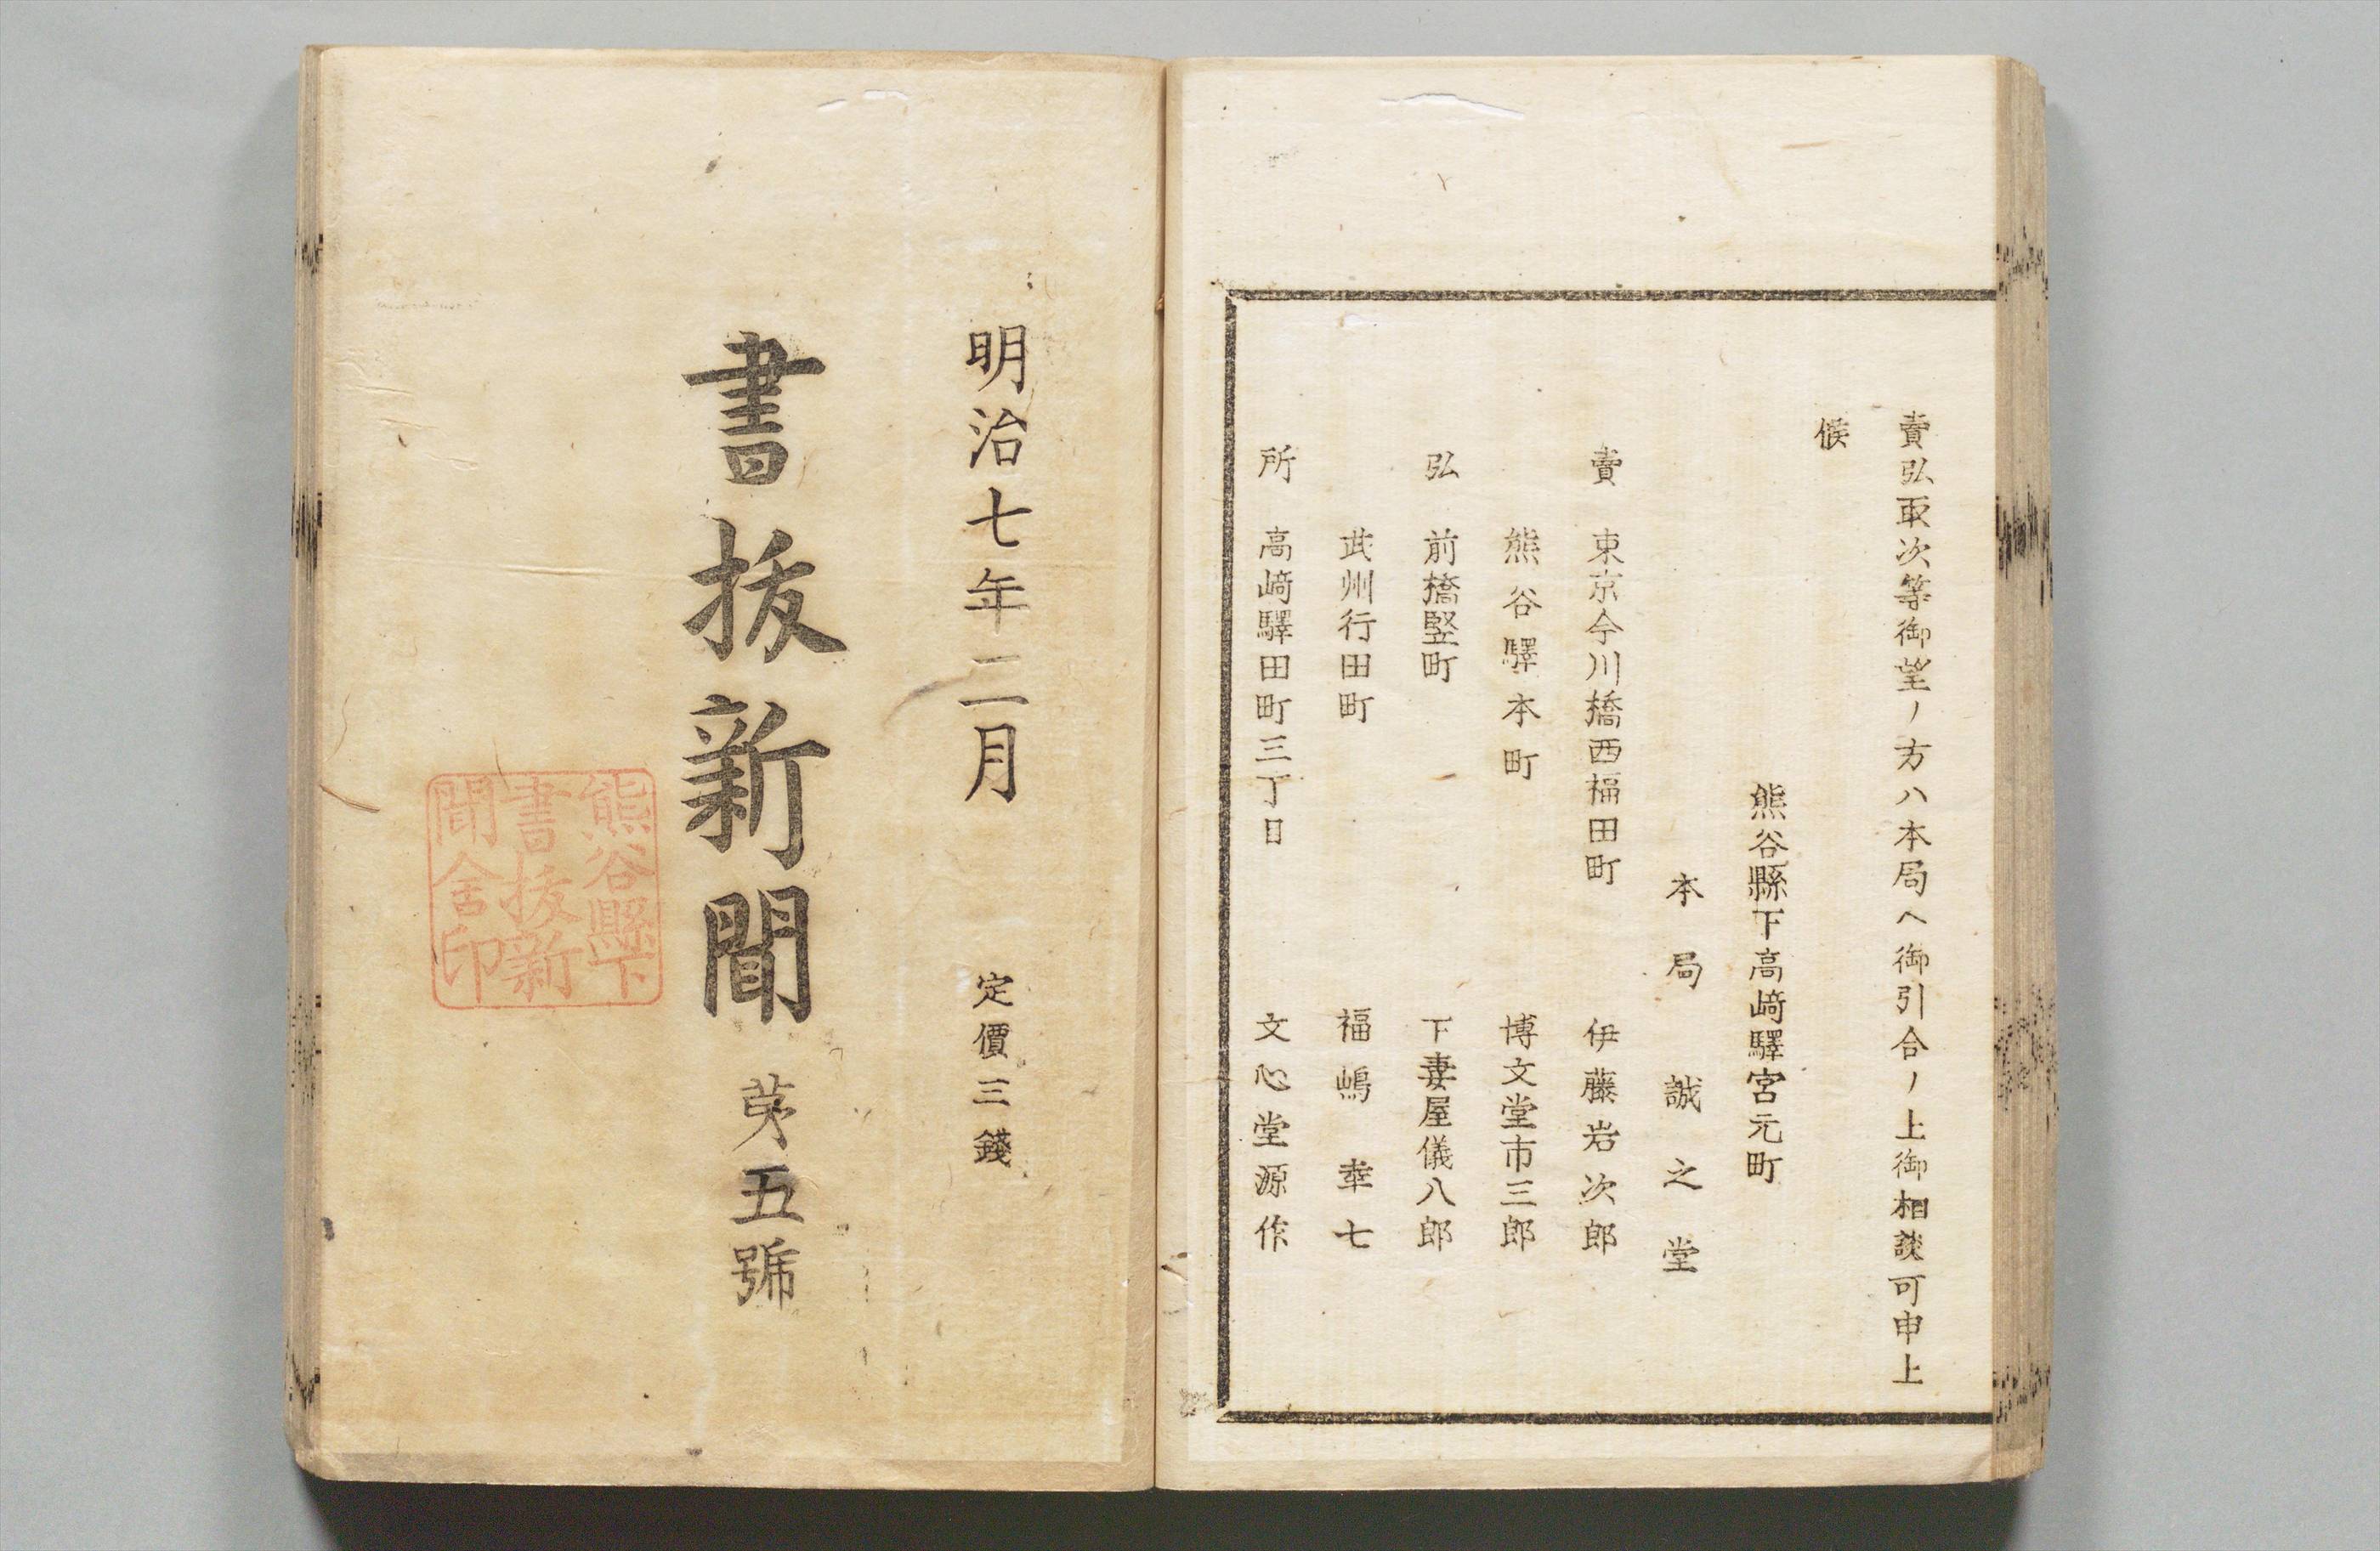 賣弘取次等御望ノ方ハ本局ヘ御引合ノ上御相談可申上
候
熊谷縣下高﨑驛宮元町
本局 誠之堂
賣 東京今川橋西福田町 伊藤岩次郎
熊谷驛本町 博文堂市三郎
弘 前橋竪町 下妻屋儀八郎
武州行田町 福嶋幸七
所 高﨑驛田町三丁目 文心堂源作
明治七年二月 定價三錢
書抜新聞 苐五號
熊谷縣下
書抜新
聞舍印